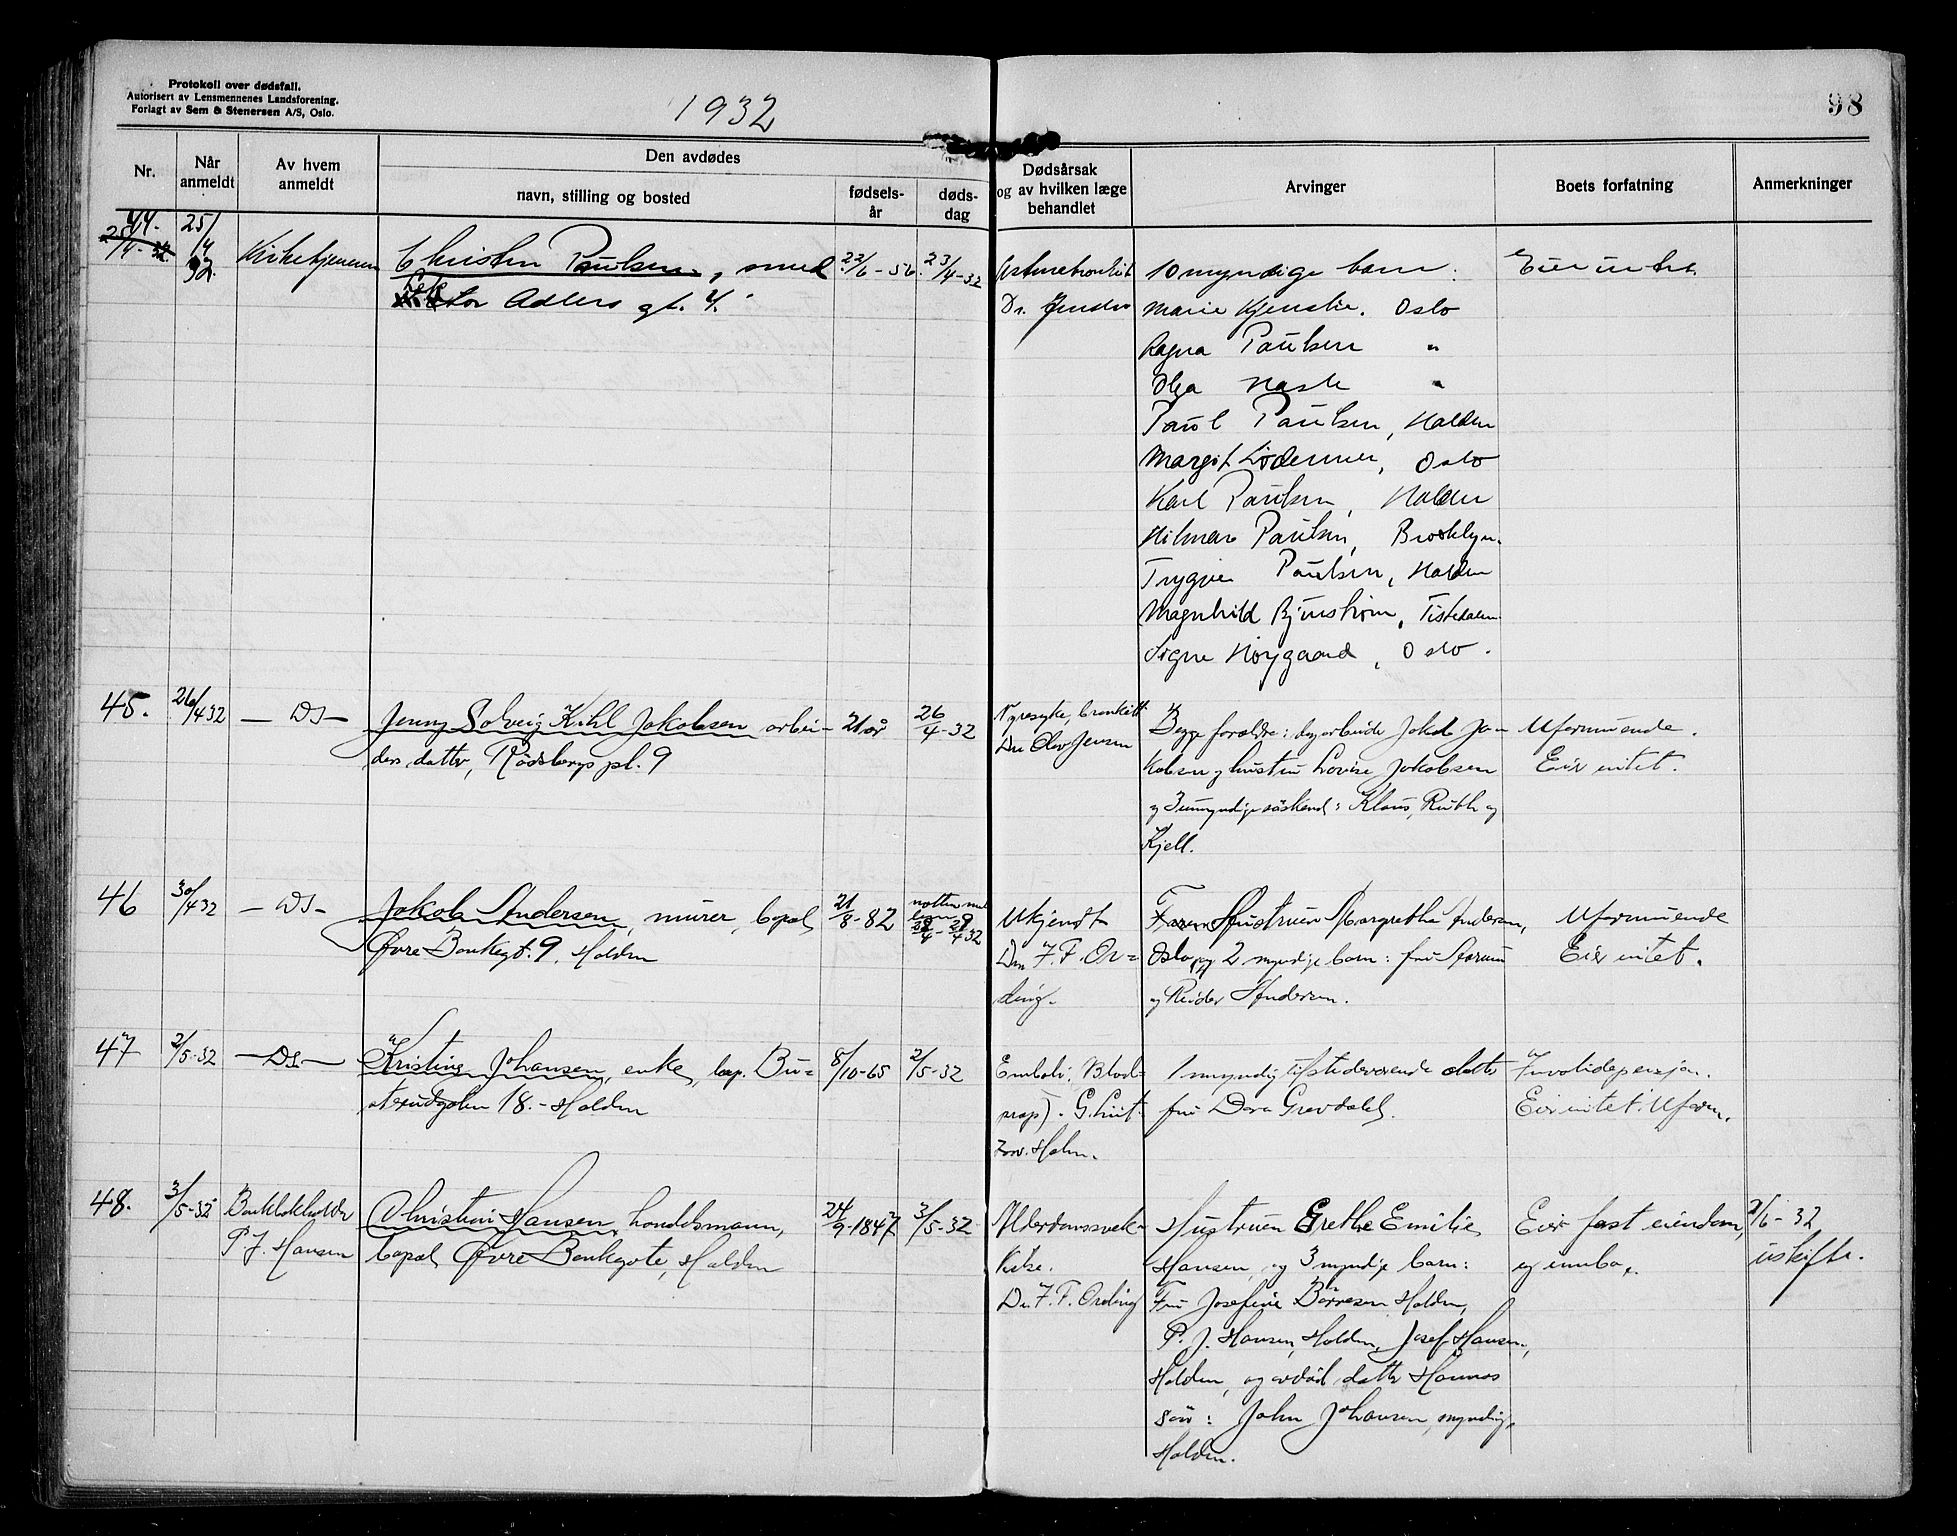 Protokoll over dødsfall.
Autorisert av Lensmennenes Landsforening.
Forlagt av Sem & Stenersen A/S, Oslo.
1932
98
Nr.
Når anmeldt
Av hvem anmeldt
Den avdødes
navn, stilling og bosted
fødsels-år
døds-dag
Dødsårsak og av hvilken læge behandlet
Arvinger
Boets forfatning
Anmerkninger
44.
25/4 32.
Kirketjeneren
Christen Paulsen, smed
Adlers gt. 4.
22/6-56.
23/4-32
Dr.
10 myndige barn.
Marie Kjenslie. Oslo
Ragna Paulsen "
Olga Hasle "
Paul Paulsen, Halden
Margit, Oslo
Karl Paulsen, Halden
Hilmar Paulsen, Brooklyn.
Trygve Paulsen, Halden
Magnhild, Tistedalen
Signe Høygaard, Oslo.
Eier intet
45.
26/4 32
— DS —
Jenny Solveig Kihl Jakobsen arbei-
ders datter, Rødsbergs pl. 9
21 år
26/4-32
Nyresyke, bronkitt
Dr. Olav Jensen
Begge forældre: Jakob Ja-
kobsen og hustru Lovise Jakobsen
og 3 umyndige søskend: Klaus, Ruth og
Kjell.
Uformuende.
Eier intet.
46
30/4 32
— DS —
Jakob Andersen, murer, bopæl
Øvre Bankegt. 9, Halden
21/8-82
natten mel
lem 28/4-29/4 32
Ukjendt
Dr. F. F. Or=
ding.
Hustruen Margrethe Andersen,
Oslo, og 2 myndige barn: fru
og Reidar Andersen.
Uformuende
Eier intet.
47
2/5-32
— DS —
Kristine Johansen, enke, bop. Bu=
skerudgaten 18. - Halden
8/10-65
2/5-32
Emboli. Blod=
prop). G. Lüt-
zow. Holm.
1 myndig tilstedeværende datter
fru Dora Grevdahl.
Invalidepensjon.
Eier intet. Uform.
48.
3/5-32
Bankbokholder
P. J. Hansen
Christian Hansen, handelsmann,
bopæl Øvre Bankegate, Halden
24/9-1847
3/5-32
Alderdomssvak-
kelse.
Dr. F. F. Ording
Hustruen Grethe Emilie
Hansen, og 3 myndige barn:
Fru Josefine Børresen Halden,
P. J. Hansen, Halden, Josef Hansen,
Halden, og avdød datter Hannas
søn: John Johansen, myndig,
Halden.
Eier fast eiendom,
og innbo.
2/6-32
uskifte.